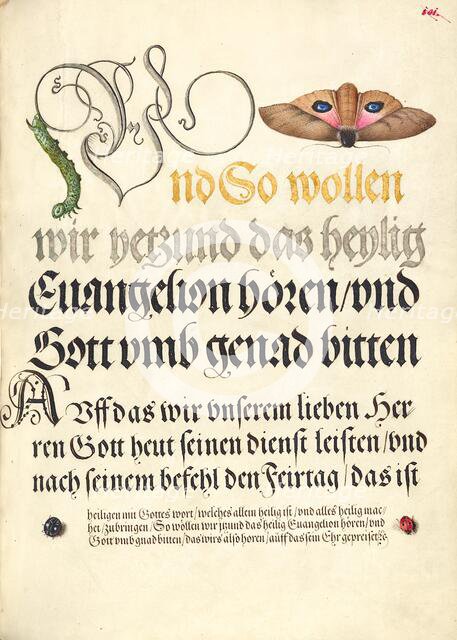 101.
Vnd So wollen
wir yetzund das heylig
Euangelion hören/vnd
Gott vmb genad bitten
AVff das wir vnserem lieben Her-
ren Gott heut seinen dienst leisten/vnd
nach seinem befehl den Feirtag/das ist
heiligen mit Gottes wort/welches allein heilig ist/vnd alles heilig ma-
chet/zubringen/So wöllen wir jzund das heilig Euangelion hören/vnd
Gott vmb gnad bitten/das wirs also hören/auff das sein Ehr gepreiset